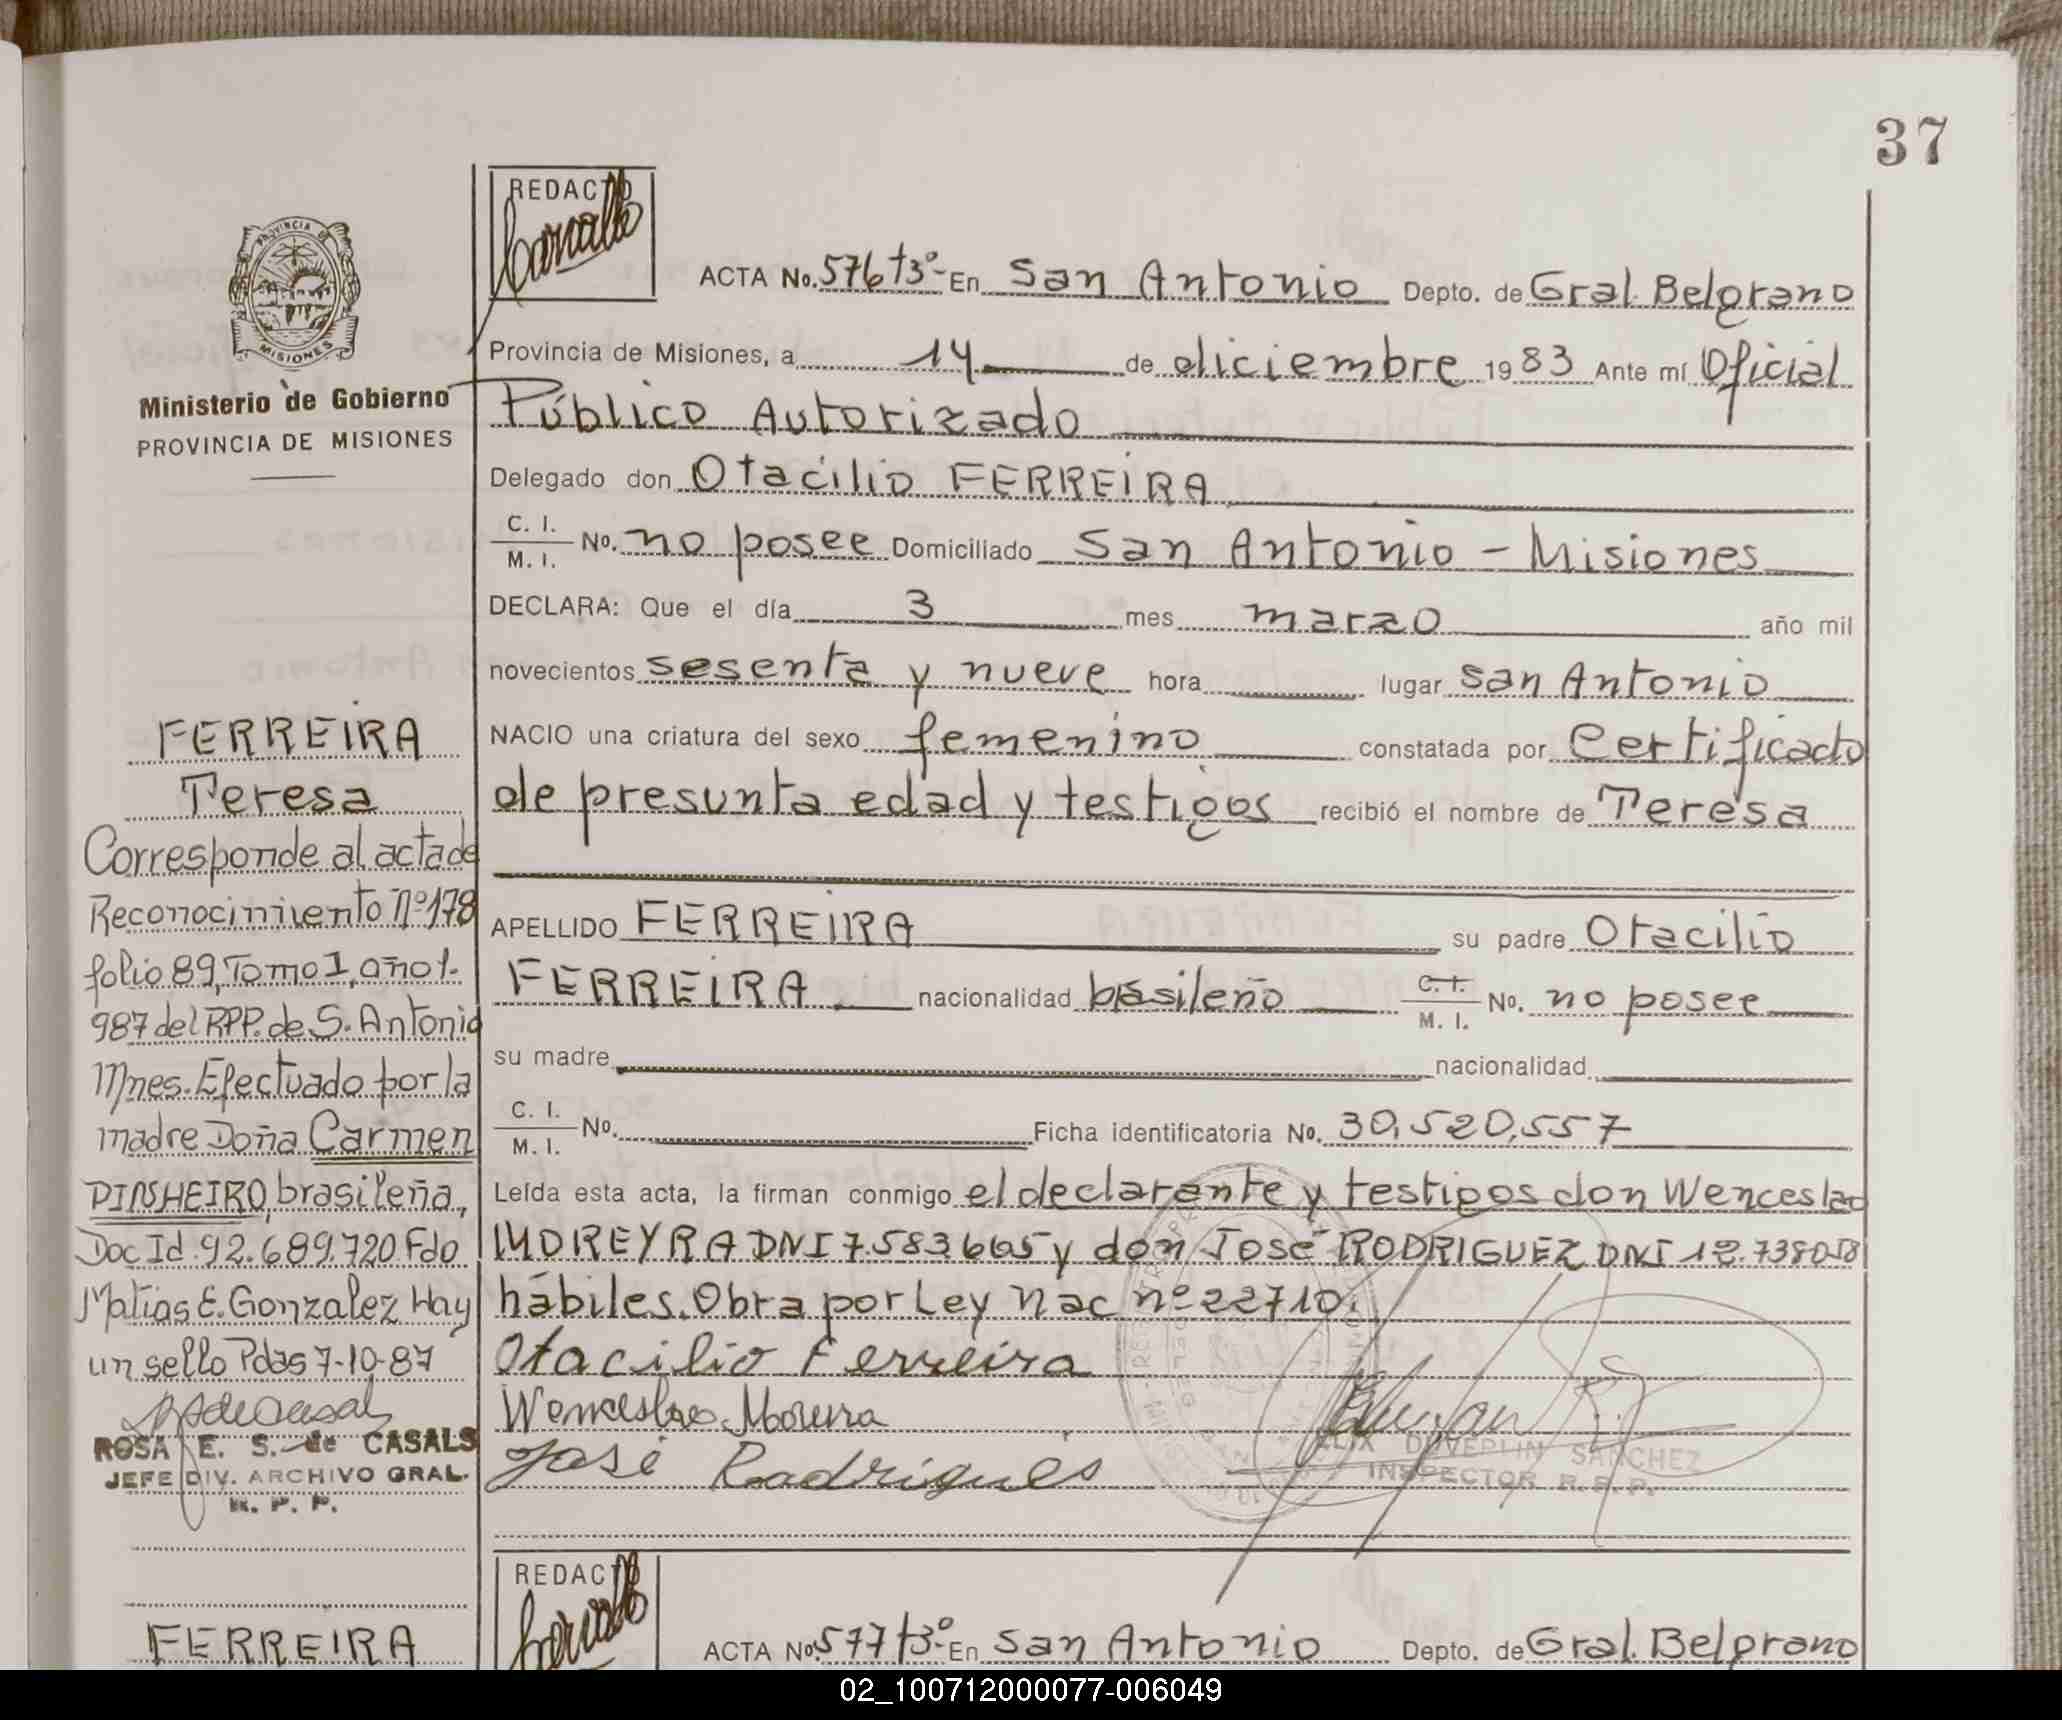 37
REDACTO
Carvallo
ACTA No. 576 t3º- En San Antonio Depto. de Gral. Belgrano
Provincia de Misiones, a 14 de diciembre 1983 Ante mí Oficial
Público Autorizado
Delegado don Otacilio FERREIRA
C. I. / M. I. No. no posee Domiciliado San Antonio - Misiones
DECLARA: Que el día 3 mes marzo año mil
novecientos sesenta y nueve hora lugar San Antonio
NACIO una criatura del sexo femenino constatada por Certificado
de presunta edad y testigos recibió el nombre de Teresa
APELLIDO FERREIRA su padre Otacilio
FERREIRA nacionalidad brasileño C. I. / M. I. No. no posee
su madre nacionalidad
C. I. / M. I. No. Ficha identificatoria No. 30.520.557
Leída esta acta, la firman conmigo el declarante y testigos don Wenceslao
MOREYRA DNI 7.583.665 y don José RODRIGUEZ DNI 12.738058
hábiles. Obra por Ley Nac nº 22710.
Otacilio Ferreira
Wenceslao Moreira
José Rodrigues
DUVEPLIN SANCHEZ
INSPECTOR R. P. P.
PROVINCIA DE
MISIONES
Ministerio de Gobierno
PROVINCIA DE MISIONES
FERREIRA
Teresa
Corresponde al acta de
Reconocimiento Nº 178
folio 89, Tomo I, año 1.
987 del RPP. de S. Antonio
Mnes. Efectuado por la
madre Doña Carmen
PINSHEIRO, brasileña,
Doc Id. 92.689.720 Fdo
Matias E. Gonzalez Hay
un sello Pdas 7-10-87
ROSA E. S. de CASALS
JEFE DIV. ARCHIVO GRAL.
R. P. P.
FERREIRA
REDACTO
Carvallo
ACTA No. 577 t3º- En San Antonio Depto. de Gral. Belgrano
02_100712000077-006049